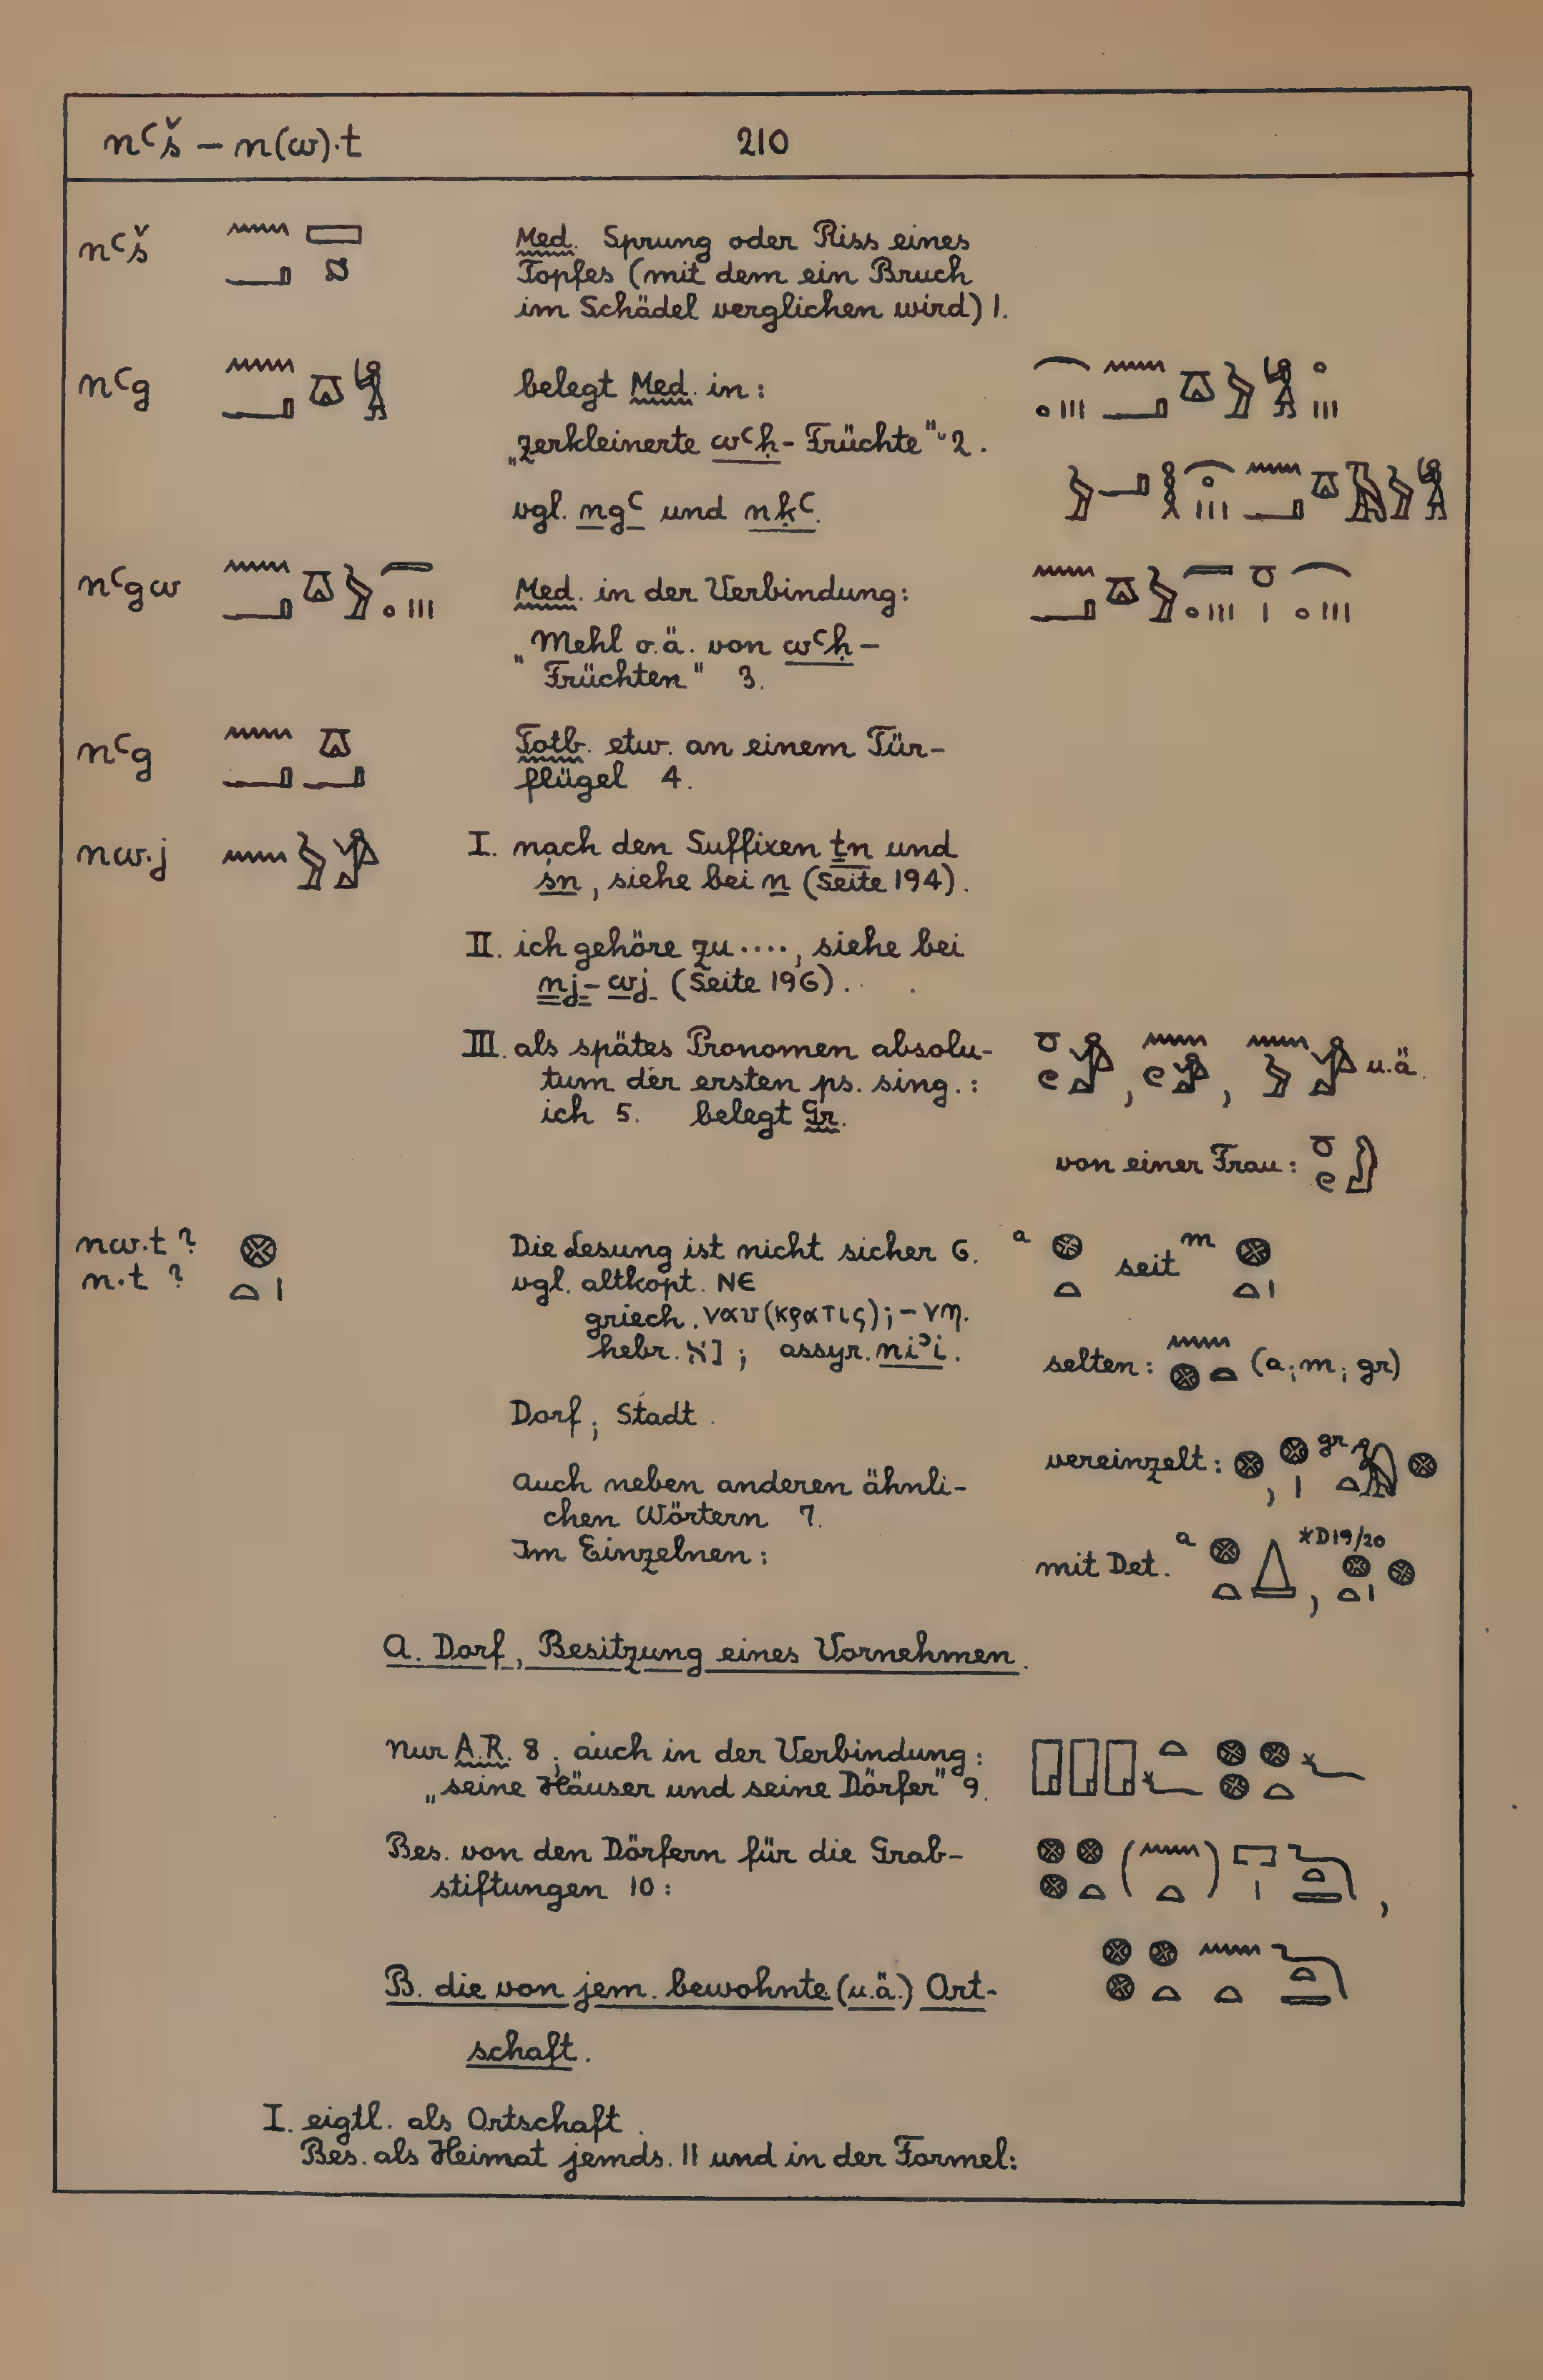 nꜥš – n(w).t 210
nꜥš Med. Sprung oder Riss eines
Topfes (mit dem ein Bruch
im Schädel verglichen wird) 1.
nꜥg belegt Med. in:
„zerkleinerte wꜥḥ-Früchte" 2.
vgl. ngꜥ und nḳꜥ.
nꜥgw Med. in der Verbindung:
„Mehl o.ä. von wꜥḥ-
Früchten" 3.
nꜥg Totb. etw. an einem Tür-
flügel 4.
nw.j I. nach den Suffixen ṯn und
śn, siehe bei n (Seite 194).
II. ich gehöre zu ...., siehe bei
nj-wj (Seite 196).
III. als spätes Pronomen absolu-
tum der ersten ps. sing.: u.ä.
ich 5. belegt Gr.
von einer Frau:
nw.t ? Die Lesung ist nicht sicher 6. a seit m
n.t ? vgl. altkopt. ΝЄ
griech. ναυ(κρατις); -νη.
hebr. נא; assyr. niʾi.
selten: (a; m; gr)
Dorf; Stadt.
vereinzelt: , gr
Auch neben anderen ähnli-
chen Wörtern 7.
Im Einzelnen:
mit Det. a , *D19/20
A. Dorf, Besitzung eines Vornehmen.
Nur A.R. 8; auch in der Verbindung:
„seine Häuser und seine Dörfer" 9.
Bes. von den Dörfern für die Grab-
stiftungen 10:
B. die von jem. bewohnte (u.ä.) Ort-
schaft.
I. eigtl. als Ortschaft.
Bes. als Heimat jemds. 11 und in der Formel: